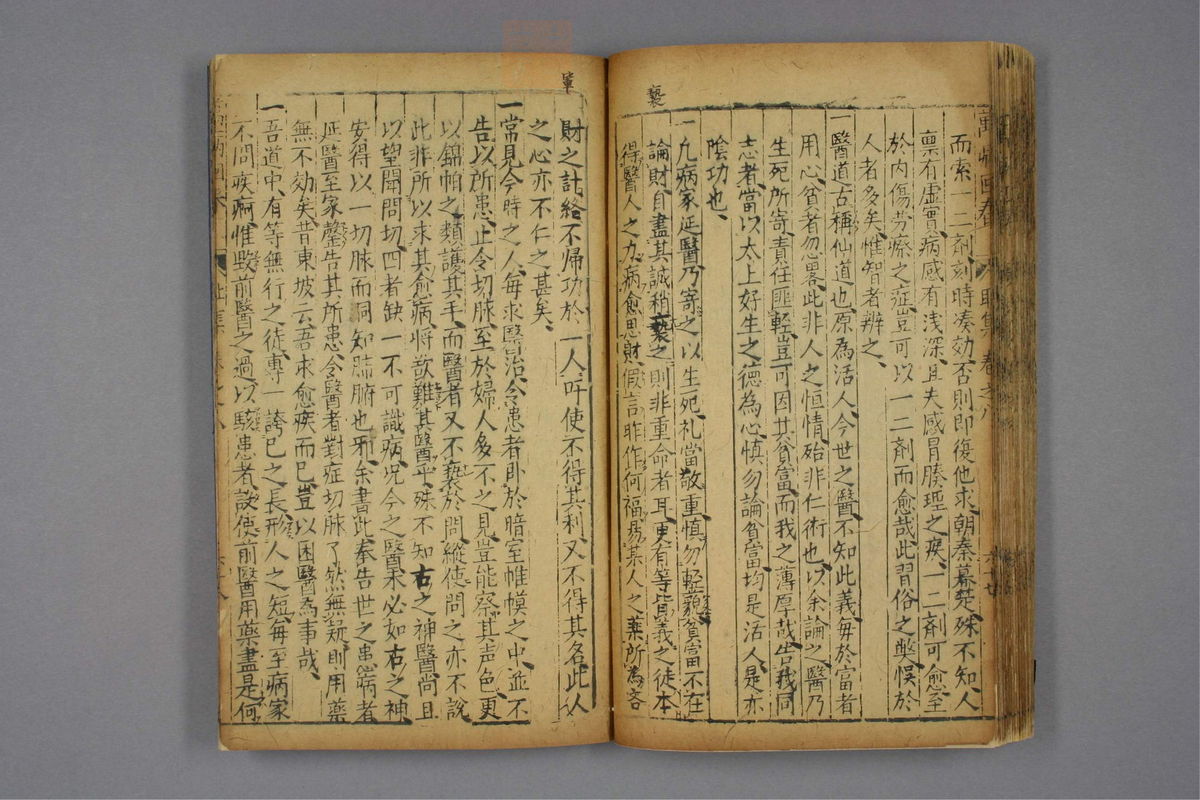 褻
萬病回春 卷之八
而索一二劑刻時湊効否則即復他求朝秦暮楚殊不知人
禀有虛實病感有浅深且夫感冒腠理之疾一二劑可愈至
於内傷労瘵之症豈可以一二劑而愈哉此習俗之獘悮於
人者多矣惟智者辨之
一醫道古稱仙道也原為活人今世之醫不知此義毎於富者
用心貧者忽畧此非人之恒情殆非仁術也以余論之醫乃
生死所寄責任匪輕豈可因其貧富而我之薄厚哉告我同
志者當以太上好生之德為心慎勿論貧富均是活人是亦
陰功也
一凢病家延醫乃寄之以生死礼當敬重慎勿輕藐貧富不在
論財自盡其誠稍褻之則非重命者耳更有等背義之徒本
得醫人之力病愈思財假言昨作何福易某人之薬所為吝
財之計終不帰功於一人吁使不得其利又不得其名此以
之心亦不仁之甚矣
一常見今時之人毎求醫治令患者卧於暗室帷幙之中並不
告以所患止令切脉至於婦人多不之見豈能察其声色更
以錦帕之類護其手而醫者又不褻於問縱使問之亦不說
此非所以求其愈病将欲難其醫乎殊不知古之神醫尚且
以望聞問切四者缺一不可識病况今之醫未必如古之神
安得以一切脉而洞知臓腑也耶余書此奉告世之患病者
延醫至家罄告其所患令醫者對症切脉了然無疑則用薬
無不効矣昔東坡云吾求愈疾而已豈以困醫為事哉
一吾道中有等無行之徒專一誇已之長形人之短毎至病家
不問疾疴惟毀前醫之過以駭患者設使前醫用藥盡是何